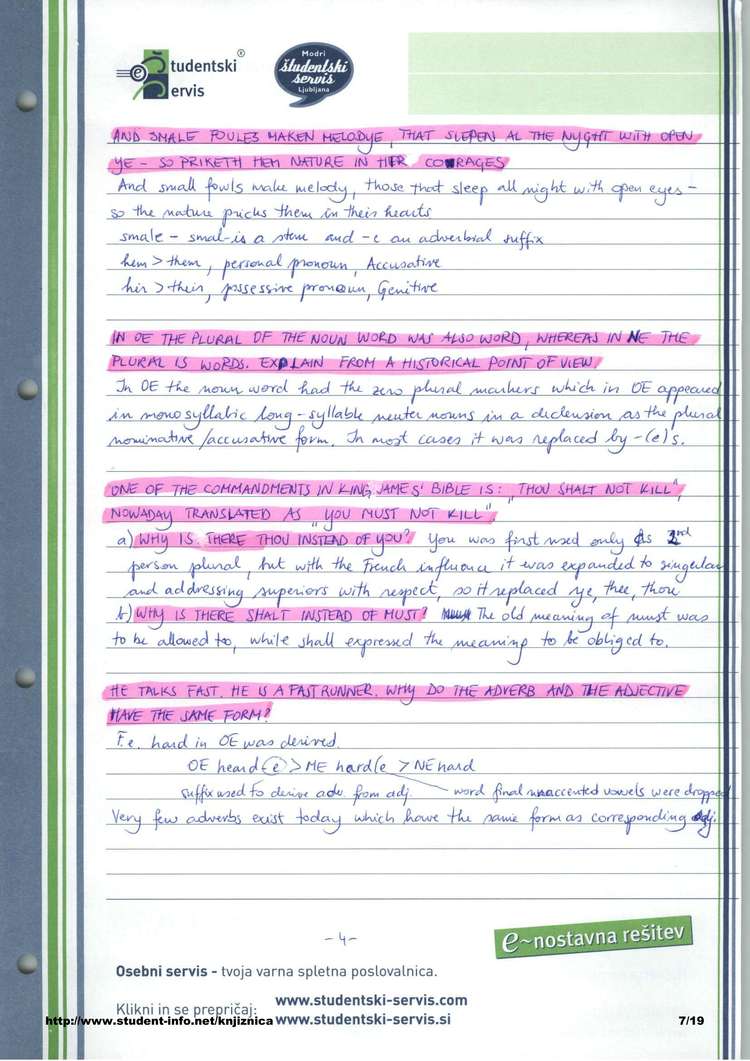 Študentski®
Servis
Modri
študentski
servis
Ljubljana
AND SMALE FOULES MAKEN MELODYE, THAT SLEPEN AL THE NYGHT WITH OPEN
YE – SO PRIKETH HEM NATURE IN HIR CORAGES
And small fowls make melody, those that sleep all night with open eyes –
so the nature pricks them in their hearts
smale – smal-is a stem and -e an adverbial suffix
hem > them, personal pronoun, Accusative
hir > their, possessive pronoun, Genitive
IN OE THE PLURAL OF THE NOUN WORD WAS ALSO WORD, WHEREAS IN NE THE
PLURAL IS WORDS. EXPLAIN FROM A HISTORICAL POINT OF VIEW.
In OE the noun word had the zero plural markers which in OE appeared
in monosyllabic long-syllable neuter nouns in a declension as the plural
nominative/accusative form. In most cases it was replaced by -(e)s.
ONE OF THE COMMANDMENTS IN KING JAMES' BIBLE IS: „THOU SHALT NOT KILL",
NOWADAY TRANSLATED AS „YOU MUST NOT KILL"
a) WHY IS THERE THOU INSTEAD OF YOU? You was first used only as 2nd
person plural, but with the French influence it was expanded to singular
and addressing superiors with respect, so it replaced ye, thee, thou
b) WHY IS THERE SHALT INSTEAD OF MUST? The old meaning of must was
to be allowed to, while shall expressed the meaning to be obliged to.
HE TALKS FAST. HE IS A FAST RUNNER. WHY DO THE ADVERB AND THE ADJECTIVE
HAVE THE SAME FORM?
F.e. hard in OE was derived.
OE heard(e) > ME hard(e > NE hard
suffix used to derive adv. from adj. word final unaccented vowels were dropped
Very few adverbs exist today which have the same form as corresponding adj.
– 4 –
e~nostavna rešitev
Osebni servis - tvoja varna spletna poslovalnica.
Klikni in se prepričaj: www.studentski-servis.com
http://www.student-info.net/knjiznica www.studentski-servis.si 7/19